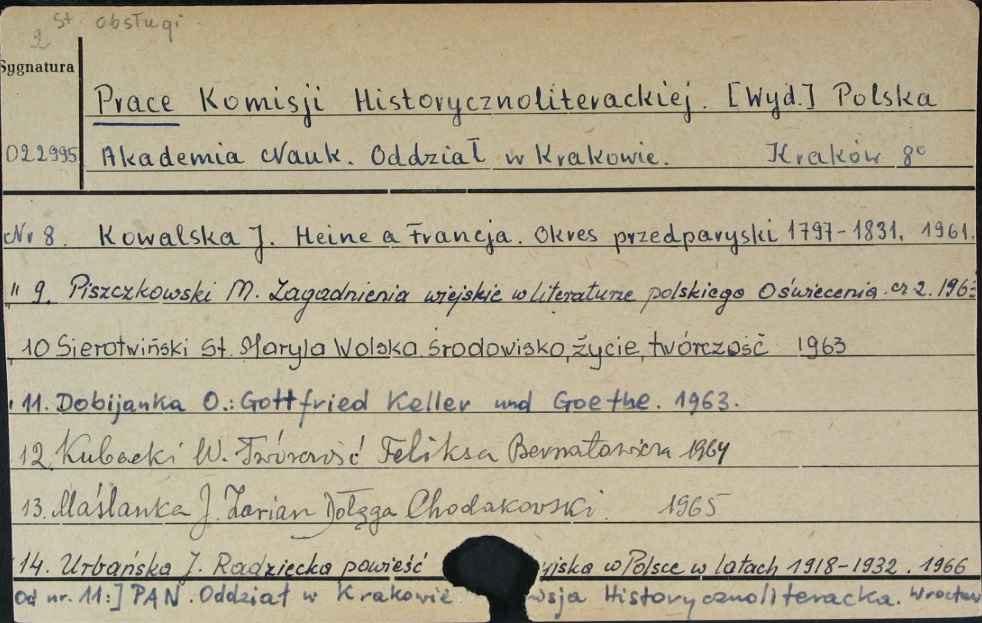 2 st. obsługi
Sygnatura
Prace Komisji Historycznoliterackiej. [Wyd.] Polska
022995 Akademia Nauk. Oddział w Krakowie. Kraków 8°
Nr 8. Kowalska J. Heine a Francja. Okres przedparyski 1797-1831. 1961.
" 9. Piszczkowski M. Zagadnienia wiejskie w literaturze polskiego Oświecenia. cz 2. 1963
" 10 Sierotwiński St. Maryla Wolska środowisko, życie, twórczość 1963
" 11. Dobijanka O.: Gottfried Keller und Goethe. 1963.
12. Kubacki W. Twórczość Feliksa Bernatowicza 1964
13. Maślanka J. Zorian Dołęga Chodakowski. 1965
14. Urbańska J. Radziecka powieść yjska w Polsce w latach 1918-1932. 1966
Od nr. 11:] PAN. Oddział w Krakowie sja Historycznoliteracka. Wrocław